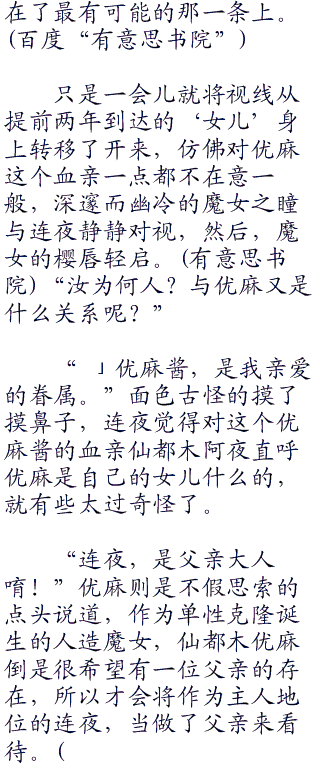 在了最有可能的那一条上。
(百度“有意思书院”)
只是一会儿就将视线从
提前两年到达的‘女儿’身
上转移了开来，仿佛对优麻
这个血亲一点都不在意一
般，深邃而幽冷的魔女之瞳
与连夜静静对视，然后，魔
女的樱唇轻启。(有意思书
院)“汝为何人？与优麻又是
什么关系呢？”
“」优麻酱，是我亲爱
的眷属。”面色古怪的摸了
摸鼻子，连夜觉得对这个优
麻酱的血亲仙都木阿夜直呼
优麻是自己的女儿什么的，
就有些太过奇怪了。
“连夜，是父亲大人
唷！”优麻则是不假思索的
点头说道，作为单性克隆诞
生的人造魔女，仙都木优麻
倒是很希望有一位父亲的存
在，所以才会将作为主人地
位的连夜，当做了父亲来看
待。(